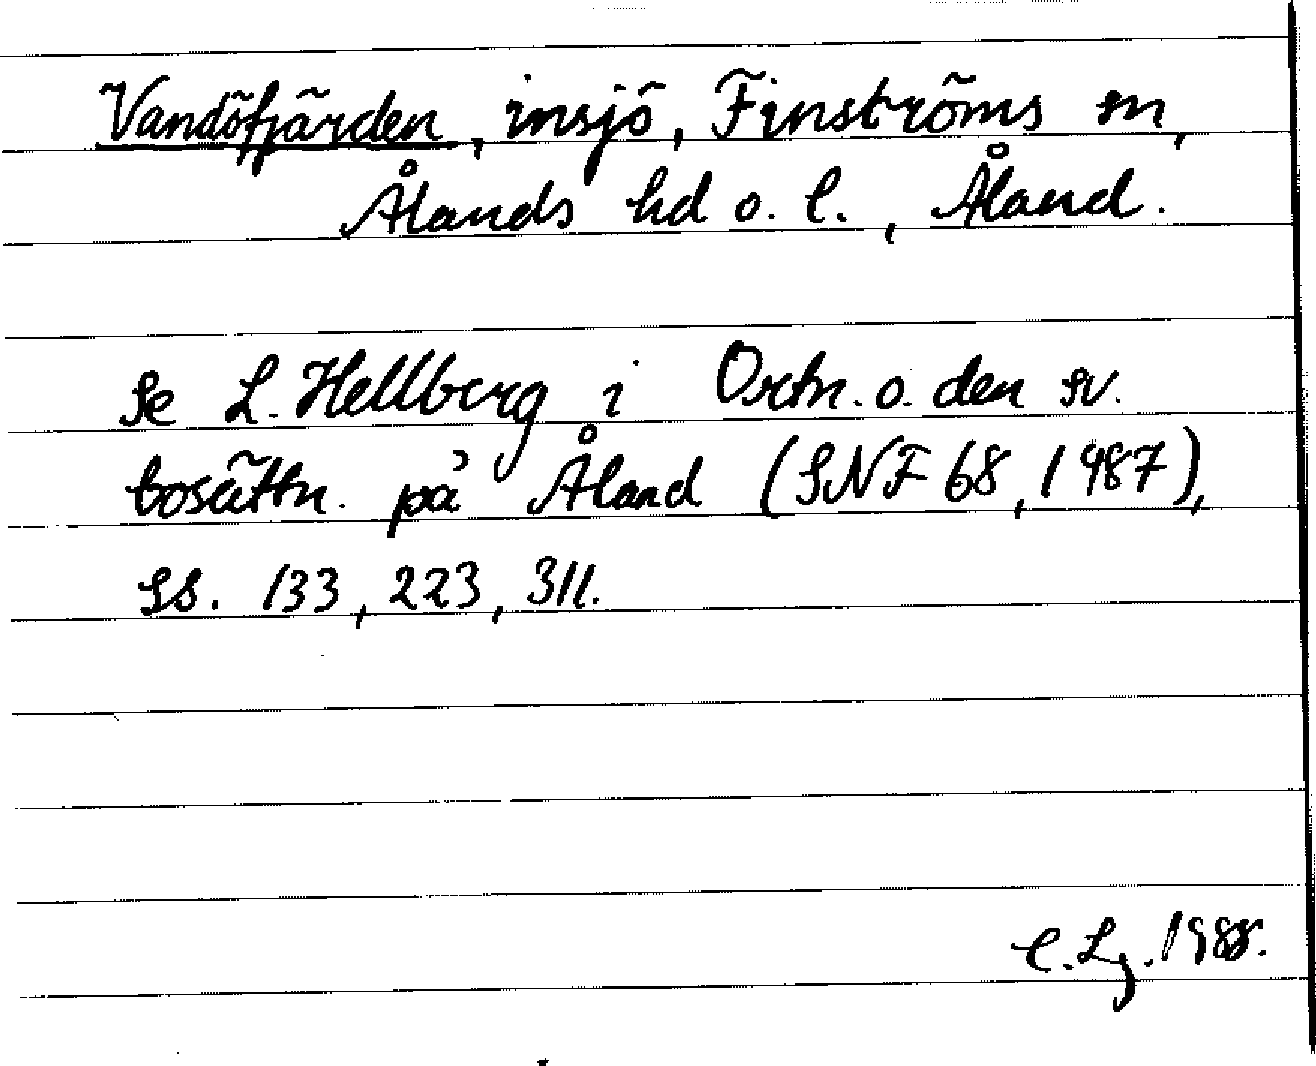 Vandöfjärden, insjö, Finströms sn,
Ålands hd o. l., Åland.
Se L. Hellberg i Ortn. o. den sv.
bosättn. på Åland (SNF 68, 1987),
ss. 133, 223, 311.
C. Lg. 1988.